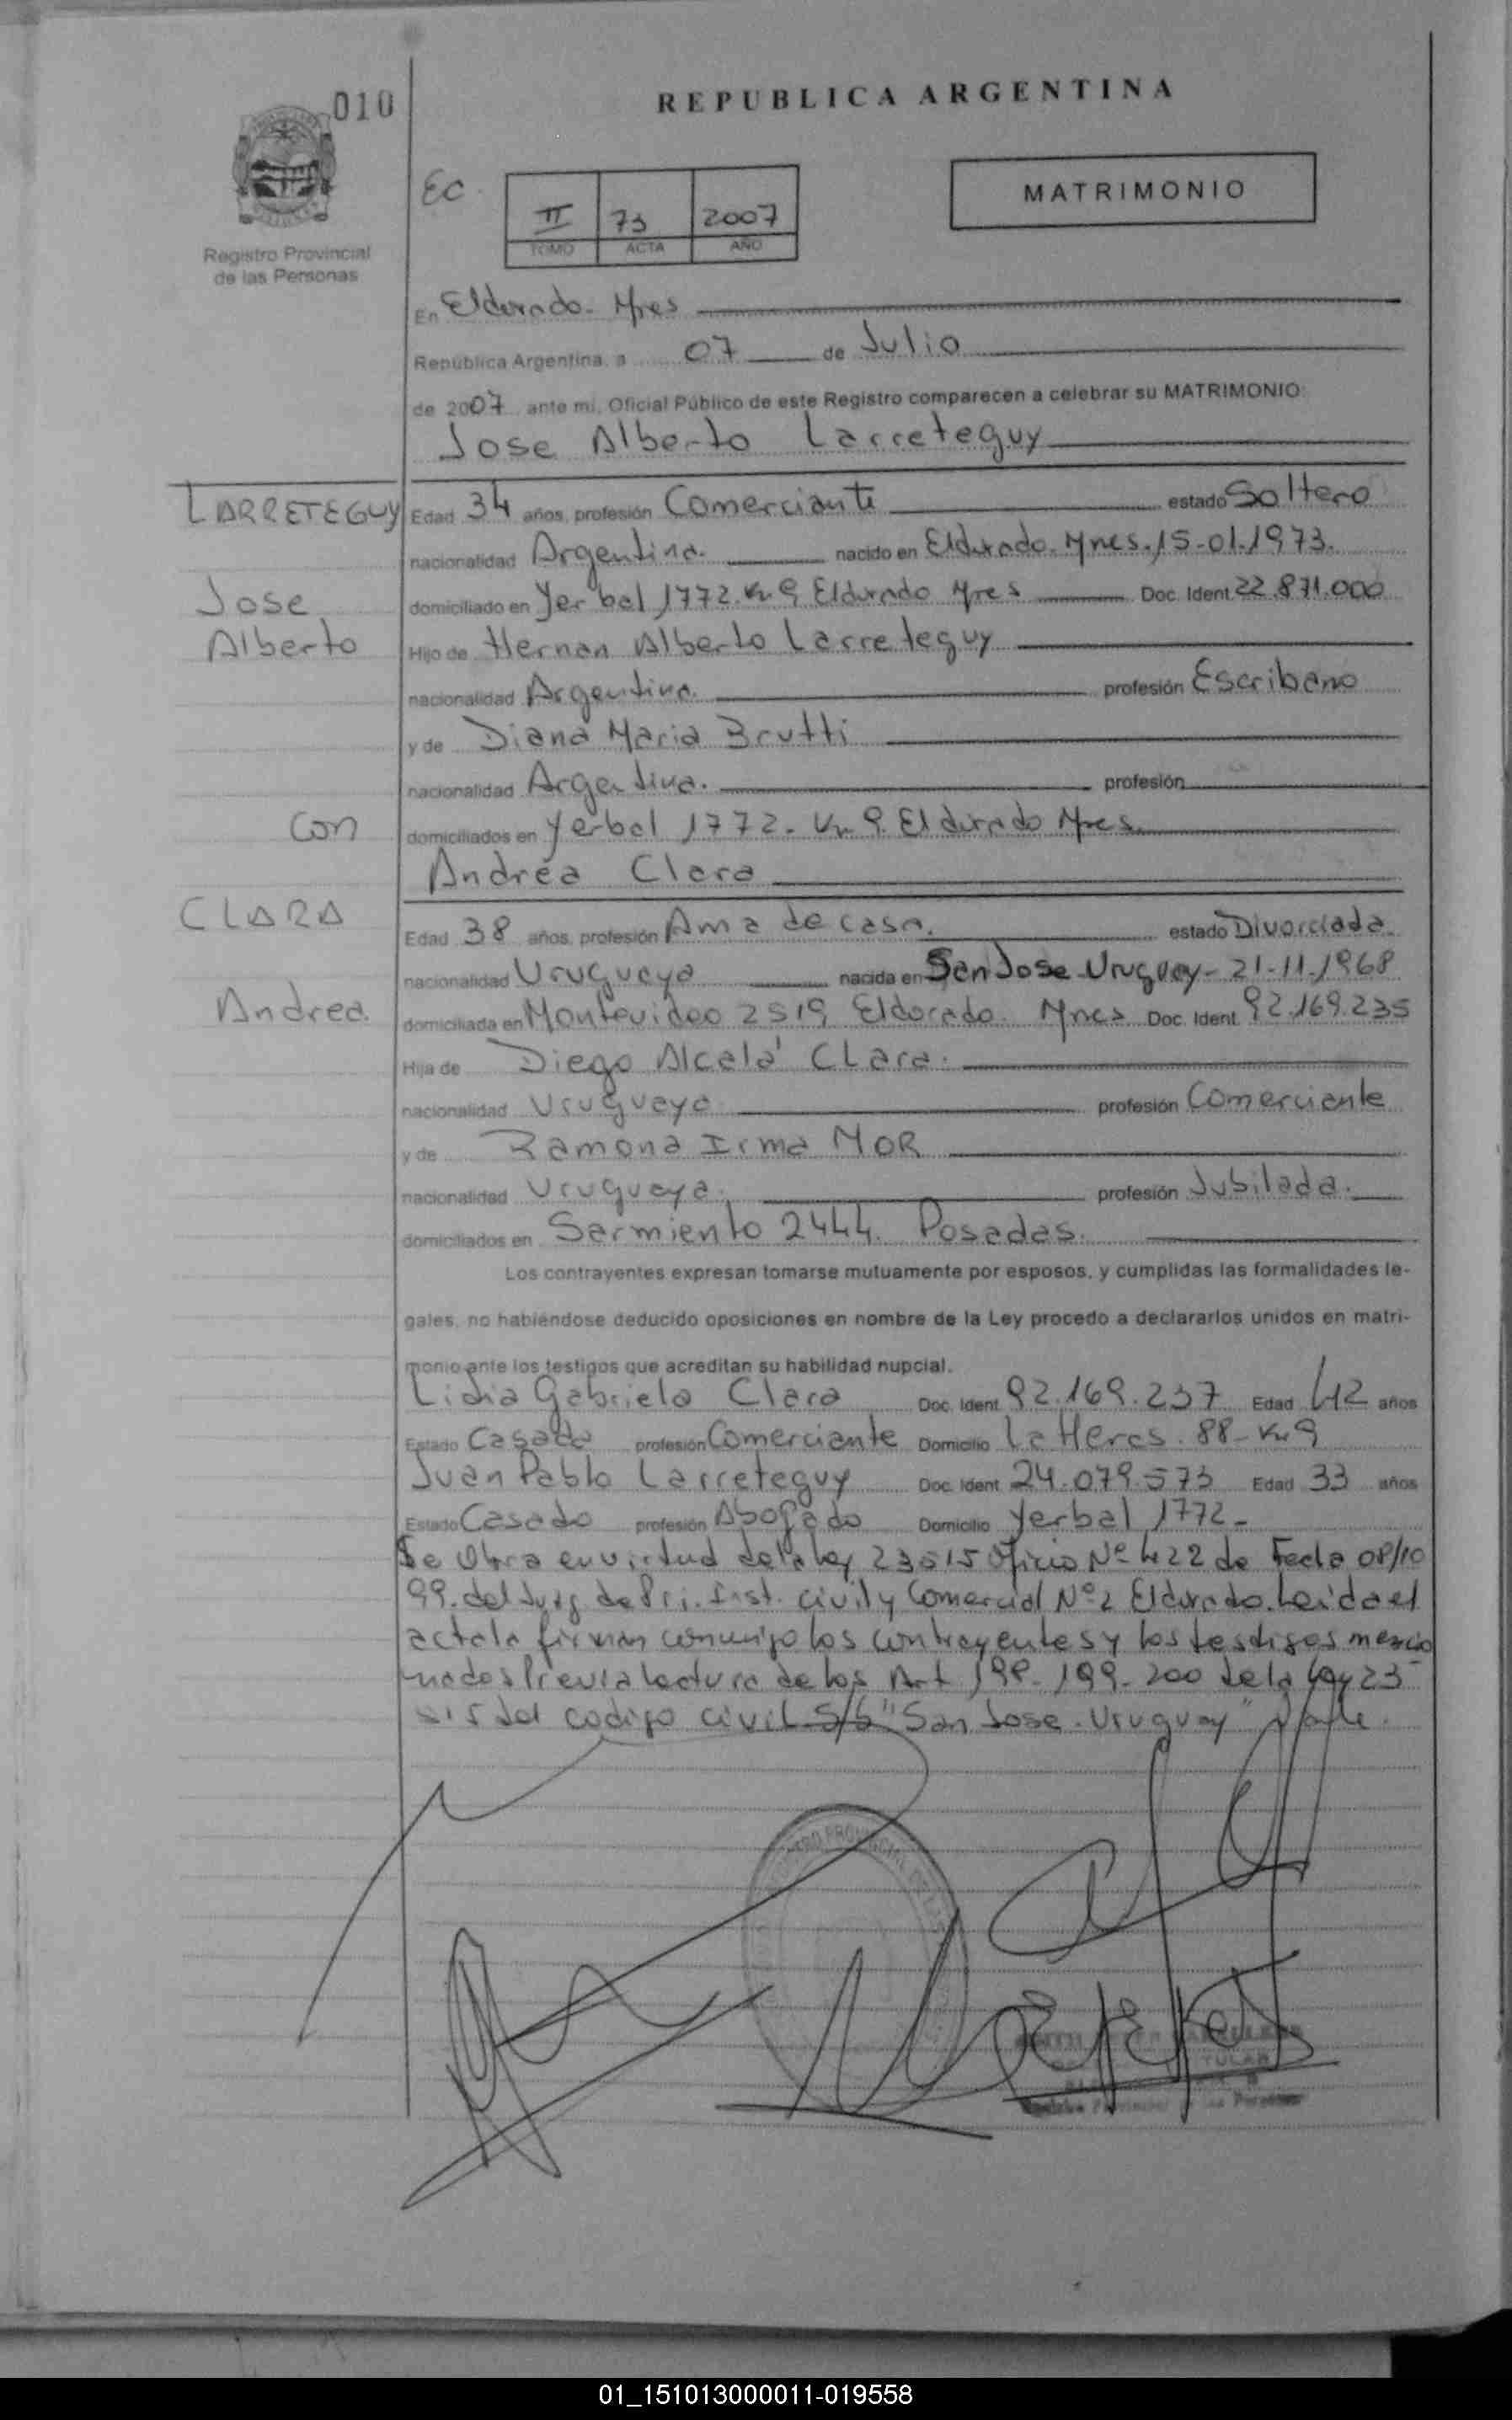 010
REPUBLICA ARGENTINA
EC.
II 73 2007
TOMO ACTA AÑO
MATRIMONIO
Registro Provincial
de las Personas
En Eldorado. Mnes
República Argentina, a 07 de Julio
de 2007 ante mi, Oficial Público de este Registro comparecen a celebrar su MATRIMONIO:
Jose Alberto Larreteguy
LARRETEGUY Edad 34 años, profesión Comerciante estado Soltero
nacionalidad Argentina. nacido en Eldorado. Mnes. 15-01-1973.
Jose domiciliado en Yerbal 1772. Km 9 Eldorado Mnes Doc. Ident. 22.871.000
Alberto Hijo de Hernan Alberto Larreteguy
nacionalidad Argentina. profesión Escribano
y de Diana Maria Brutti
nacionalidad Argentina. profesión
Con domiciliados en Yerbal 1772- Km 9. Eldorado Mnes.
Andrea Clara
CLARA Edad 38 años, profesión Ama de casa. estado Divorciada.
nacionalidad Uruguaya nacida en San Jose-Uruguay- 21-11-1968
Andrea. domiciliada en Montevideo 2519 Eldorado. Mnes Doc. Ident. 92.169.235
Hija de Diego Alcala' Clara.
nacionalidad Uruguaya profesión Comerciante
y de Ramona Irma MOR
nacionalidad Uruguaya. profesión Jubilada.
domiciliados en Sarmiento 2444. Posadas.
Los contrayentes expresan tomarse mutuamente por esposos, y cumplidas las formalidades le-
gales, no habiéndose deducido oposiciones en nombre de la Ley procedo a declararlos unidos en matri-
monio ante los testigos que acreditan su habilidad nupcial.
Lidia Gabriela Clara Doc. Ident. 92.169.237 Edad 42 años
Estado Casada profesión Comerciante Domicilio Heras. 88- Km 9
Juan Pablo Larreteguy Doc. Ident. 24.079.573 Edad 33 años
Estado Casado profesión Abogado Domicilio Yerbal 1772-
Se Obra en virtud de la ley 23515 Oficio Nº 422 de Fecha 08/10
99. del Juzg de Pri. Inst. Civil y Comercial Nº 2 Eldorado. Leida el
acta la firman conmigo los contrayentes y los testigos mencio
nados Previa lectura de los Art 198-199-200 de la ley 23
515 del codigo civil S/S "San Jose-Uruguay" Vale.
REGISTRO PROVINCIAL DE LAS
01_151013000011-019558